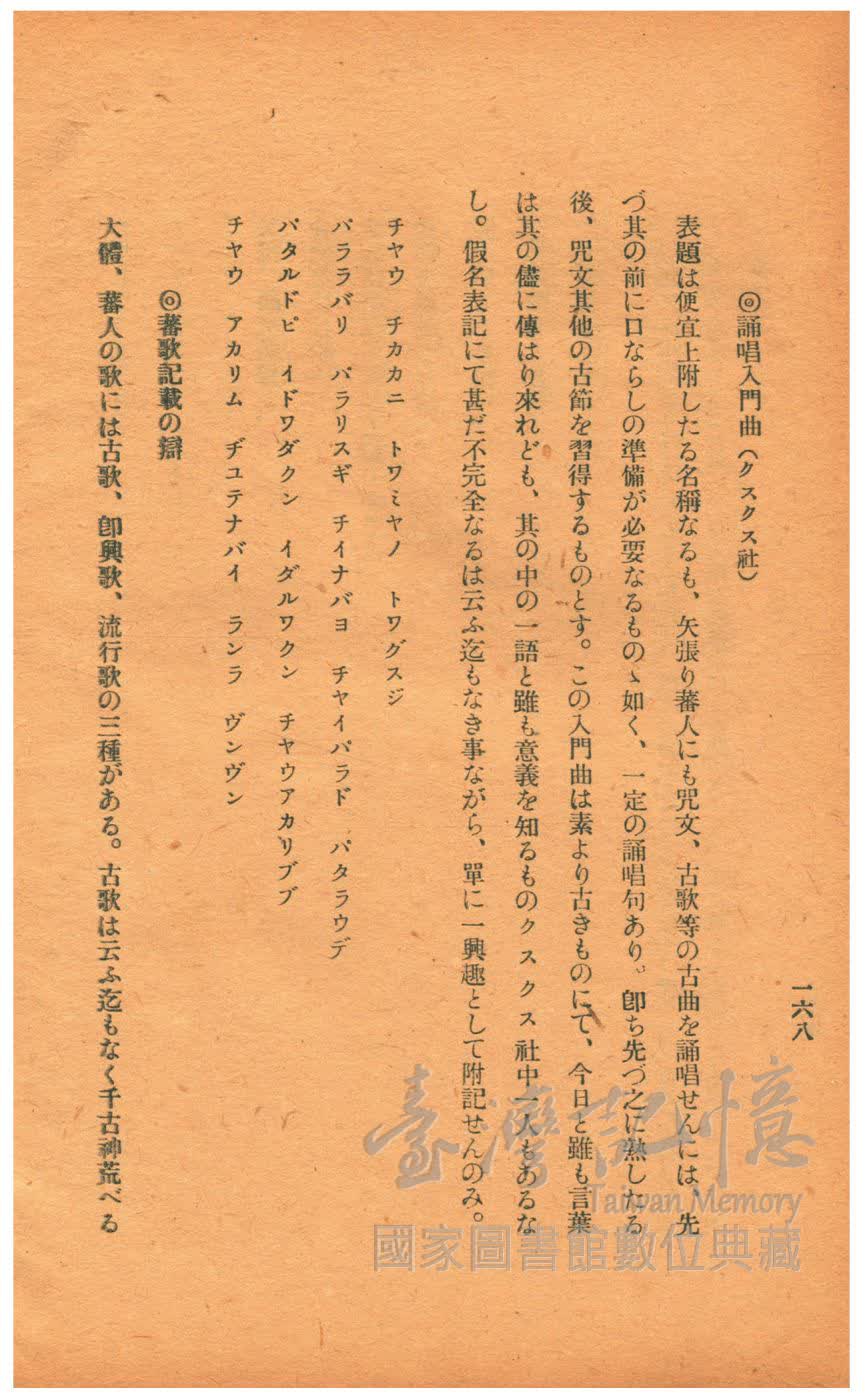 一六八
◎誦唱入門曲（クスクス社）
表題は便宜上附したる名稱なるも、矢張り蕃人にも咒文、古歌等の古曲を誦唱せんには、先
づ其の前に口ならしの準備が必要なるものゝ如く、一定の誦唱句あり。卽ち先づ之に熟したる
後、咒文其他の古節を習得するものとす。この入門曲は素より古きものにて、今日と雖も言葉
は其の儘に傳はり來れども、其の中の一語と雖も意義を知るものクスクス社中一人もあるな
し。假名表記にて甚だ不完全なるは云ふ迄もなき事ながら、單に一興趣として附記せんのみ。
チヤウ　チカカニ　トワミヤノ　トワグスジ
パララバリ　パラリスギ　チイナバヨ　チヤイパラド　パタラウデ
パタルドピ　イドワダクン　イダルワクン　チヤウアカリブブ
チヤウ　アカリム　ヂユテナバイ　ランラ　ヴンヴン
◎蕃歌記載の辯
大體、蕃人の歌には古歌、卽興歌、流行歌の三種がある。古歌は云ふ迄もなく千古神荒べる
臺灣記憶
Taiwan Memory
國家圖書館數位典藏